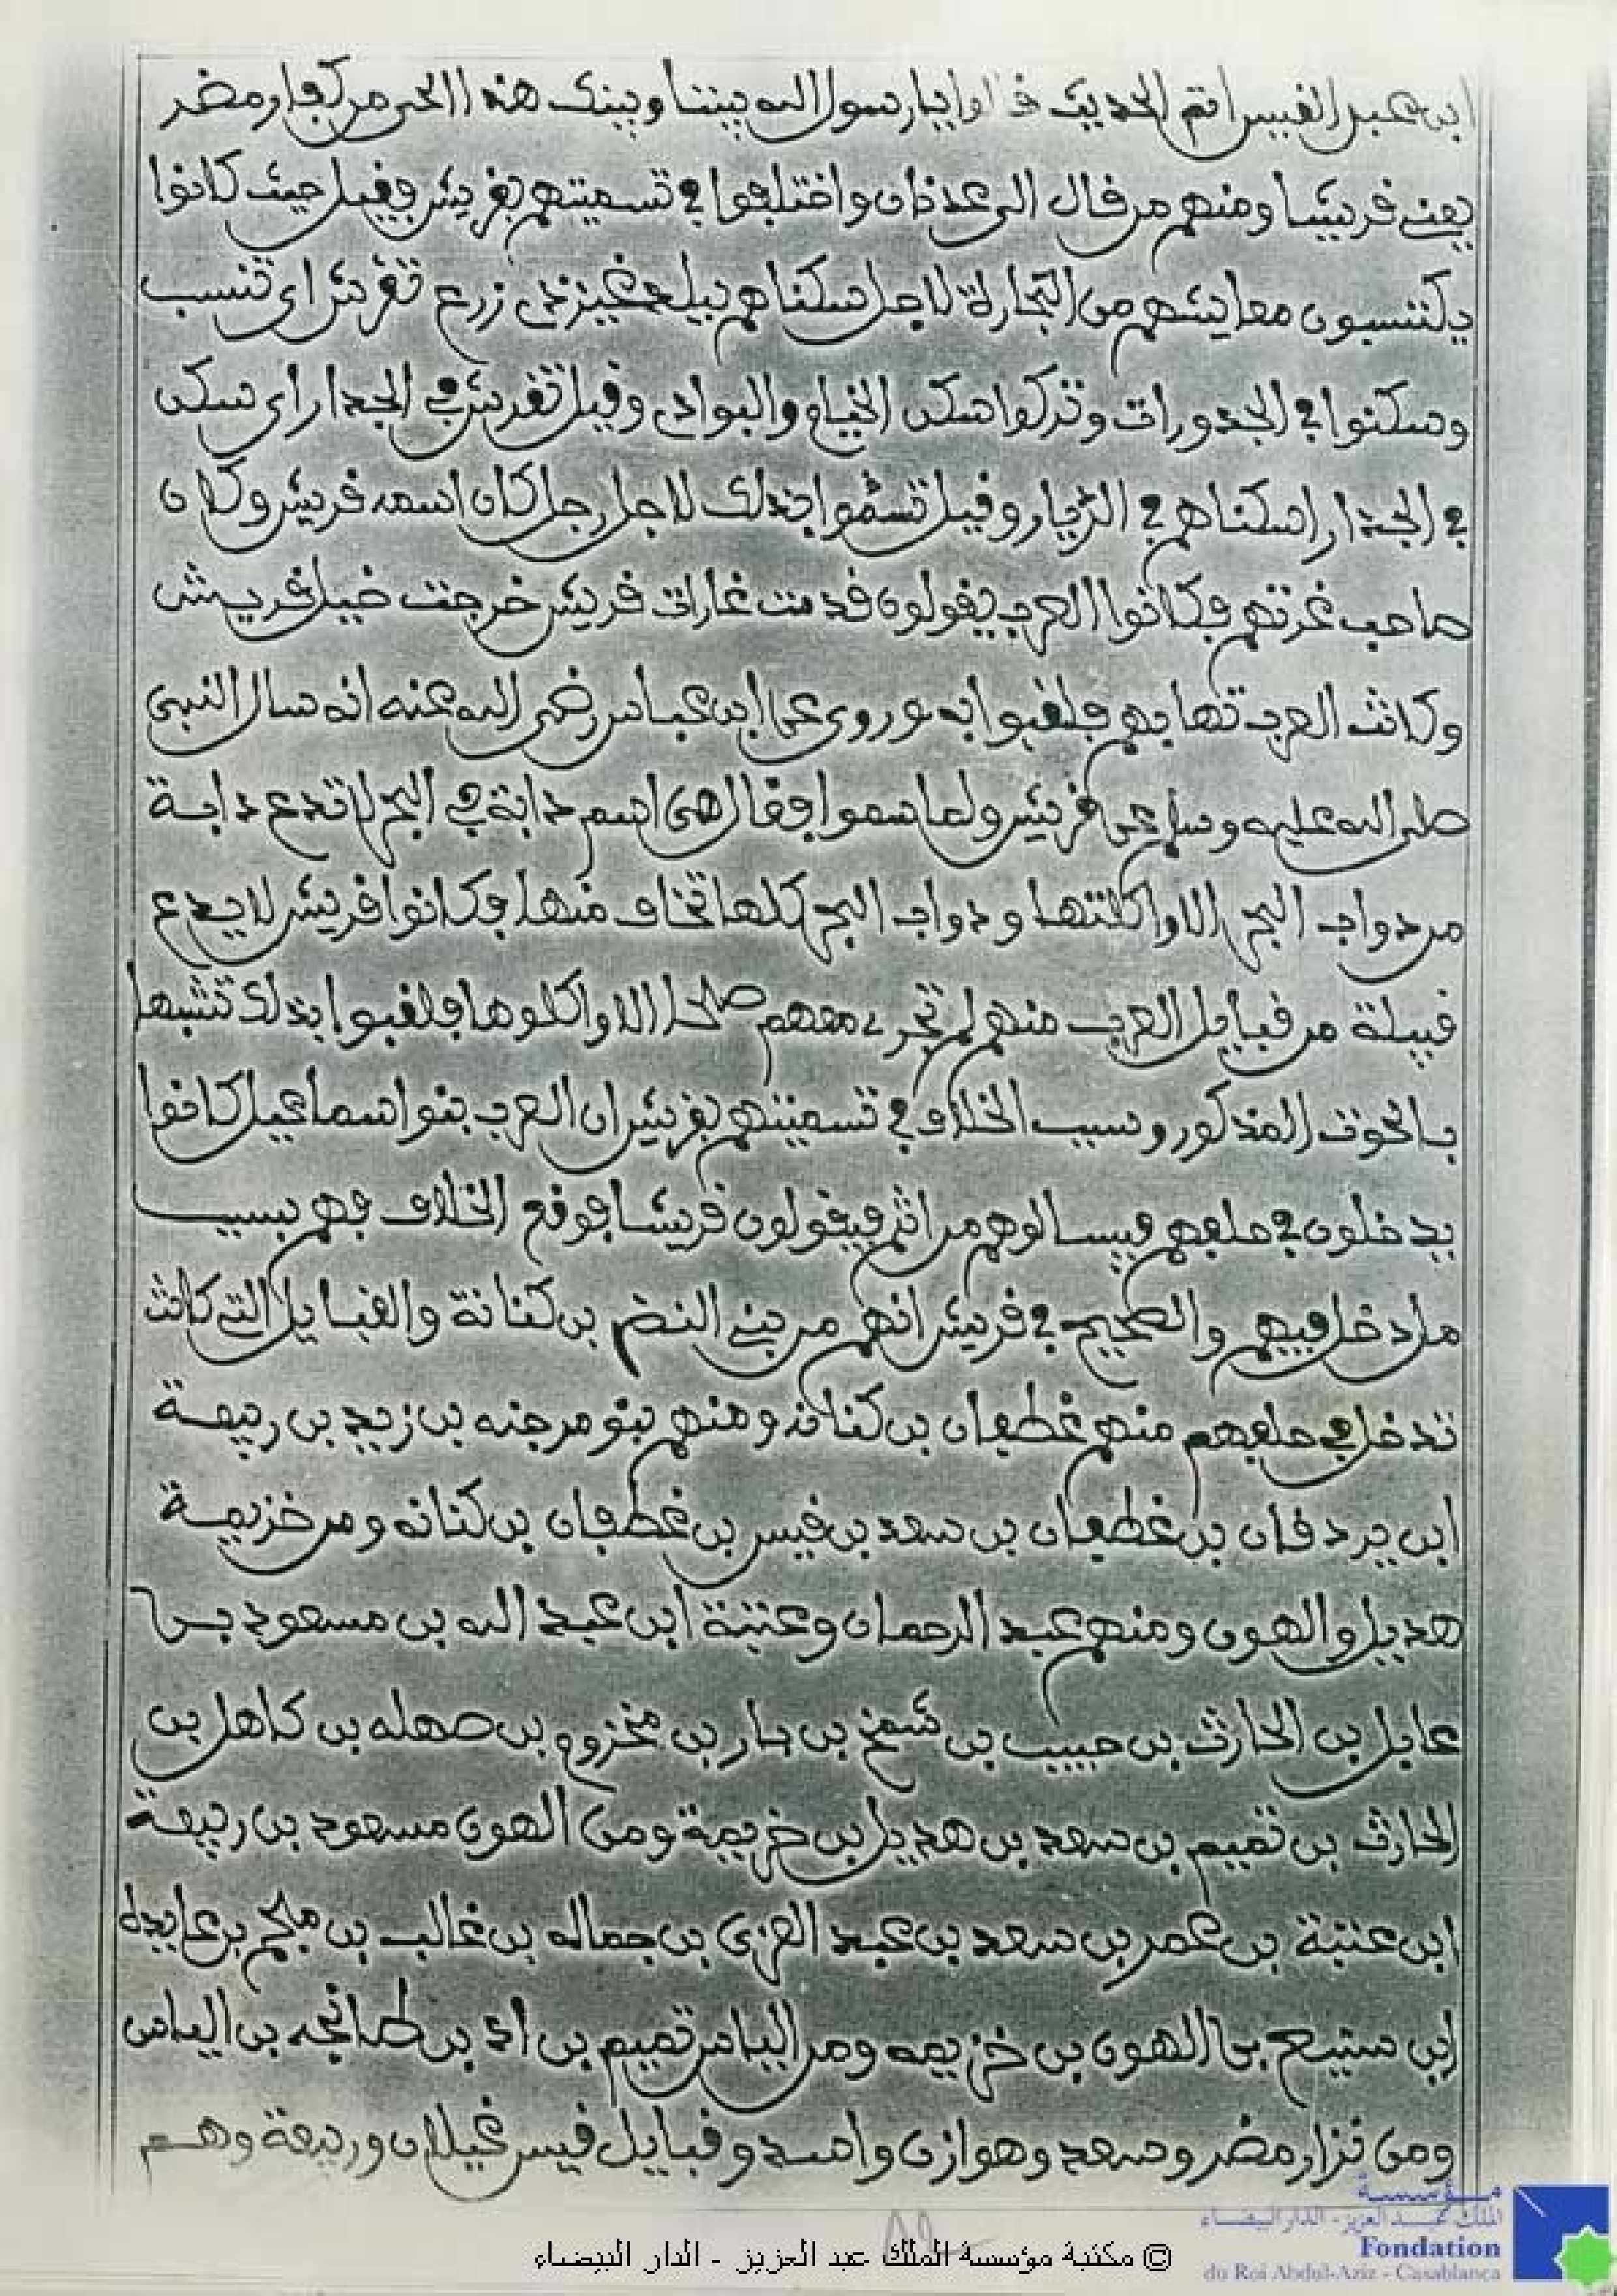 ابن عبد القيس اتم الحديث قالوا يا رسول الله بيننا وبينك هذا الحي من كفار مضر
يعني قريشا ومنهم من قال الى عدنان واختلفوا في تسميتهم بقريش فقيل حيث كانوا
يكتسبون معايشهم من التجارة لاجل سكناهم ببلد غير ذي زرع تقرش اي تنسب
وسكنوا في الجدورات وتركوا سكن الخيام والبوادي وقيل تقرش في الجدار اي سكن
في الجدار اسكناهم في الديار وقيل تسموا بذلك لاجل رجل كان اسمه قريش وكان
صاحب غرتهم فكانوا العرب يقولون قدمت غارات قريش خرجت خيل قريش
وكانت العرب تهابهم فلقبوا به وروي عن ابن عباس رضي الله عنه انه سال النبي
صلى الله عليه وسلم عن قريش ولما سموا فقال هي اسم دابة في البحر لا تدع دابة
من دواب البحر الا واكلتها ودواب البحر كلها تخاف منها فكانوا قريش لا يدع
قبيلة من قبايل العرب منهم لم تجر معهم صلحا الا واكلوها فلقبوا بذلك تشبها
بالحوت المذكور وسبب الخلاف في تسميتهم بقريش ان العرب بنوا اسماعيل كانوا
يدخلون في حلفهم فيسالوهم من انتم فيقولون قريشا فوقع الخلاف فهم بسبب
ما دخل فيهم والصحيح في قريش انهم من بني النضر بن كنانة والقبايل التي كانت
تدخل في حلفهم منهم غطفان بن كنانه ومنهم بنو مرجنه بن زيد بن ربيعة
ابن يردفان بن غطفان بن سعد بن قيس بن غطفان بن كنانه ومن خزيمة
هديل والهون ومنهم عبد الرحمان وعتبة ابن عبد الله بن مسعود بن
عابل بن الحارث بن حبيب بن شمخ بن بار بن مخزوم بن صهله بن كاهل بن
الحارث بن تميم بن سعد بن هديل بن خزيمة ومن الهون مسعود بن ربيعة
ابن عتبة بن عمر بن سعد بن عبد العزى بن جماله بن غالب بن ملحم بن عايدة
ابن سبيع بن الهون بن خزيمه ومن الياس تميم بن اد بن طانجه بن الياس
ومن نزار مضر وسعد وهوازن واسد وقبايل قيس غيلان وربيعة وهم
© مكتبة مؤسسة الملك عبد العزيز - الدار البيضاء
مؤسسة
الملك عبد العزيز - الدار البيضاء
Fondation
du Roi Abdul-Aziz - Casablanca